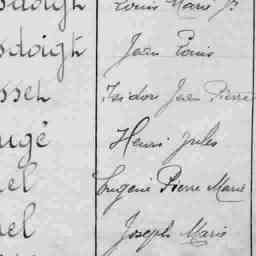 sdoigt Louis Marie J^h
sdoigt Jean Louis
sset Isidore Jean Pierre
ugé Henri Jules
el Eugène Pierre Marie
el Joseph Marie